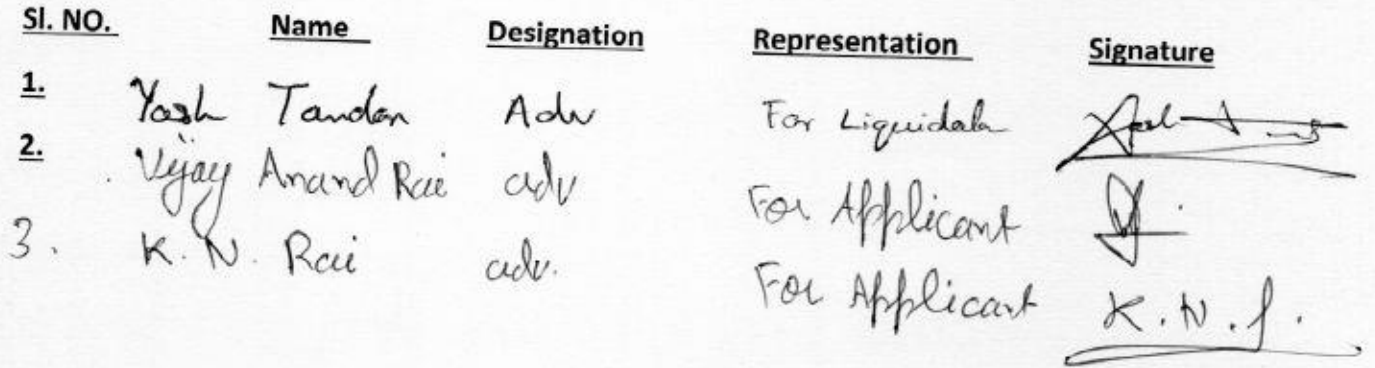 Sl. NO. Name Designation Representation Signature
1. Yash Tandon Adv For Liquidator
2. Vijay Anand Rai adv For Applicant
3. K. N. Rai adv. For Applicant K. N.